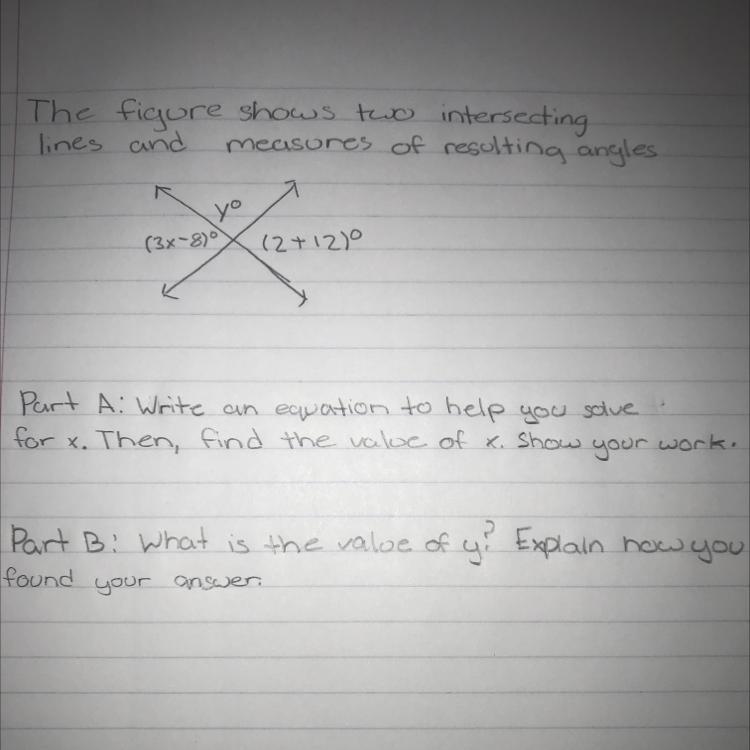 The figure shows two intersecting
lines and measures of resulting angles
y°
(3x-8)° (2+12)°
Part A: Write an equation to help you solve
for x. Then, find the value of x. Show your work.
Part B: What is the value of y? Explain how you
found your answer.